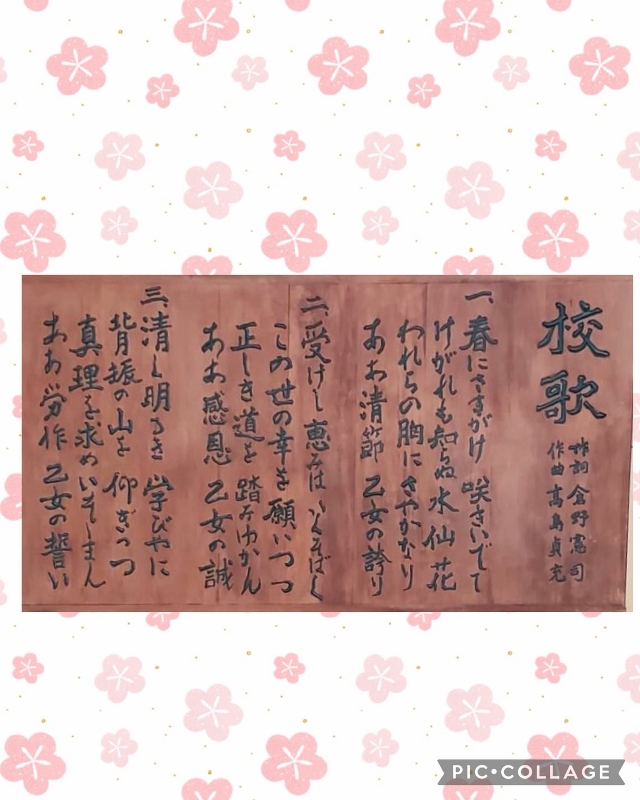 校歌
作詞 金野憲司
作曲 髙島貞充
一、春にさきがけ 咲きいでて
けがれも知らぬ 水仙花
われらの胸に さやかなり
ああ清節 乙女の誇り
二、受けし恵みは いくそばく
この世の幸を 願いつつ
正しき道を 踏みゆかん
ああ感恩 乙女の誠
三、清く明るき 学びやに
背振の山を 仰ぎつつ
真理を求め いそしまん
ああ労作 乙女の誓い
PIC•COLLAGE